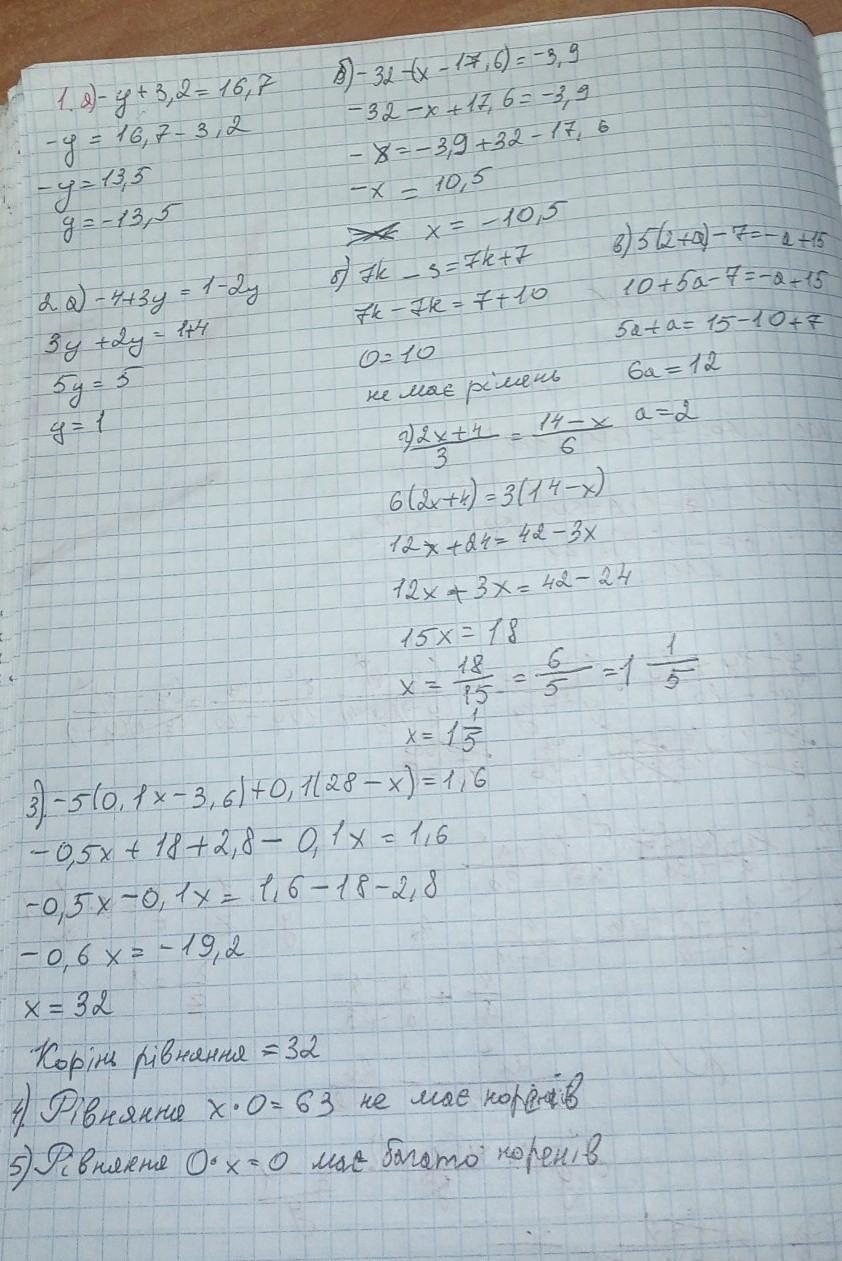 1. а) - y + 3,2 = 16,7
- y = 16,7 - 3,2
- y = 13,5
y = - 13,5
б) - 32 - (x - 17,6) = - 3,9
- 32 - x + 17,6 = - 3,9
- x = - 3,9 + 32 - 17,6
- x = 10,5
x = - 10,5
2. а) - 4 + 3y = 1 - 2y
3y + 2y = 1 + 4
5y = 5
y = 1
б) 7k - 3 = 7k + 7
7k - 7k = 7 + 10
0 = 10
не має рімень
в) 5(2 + a) - 7 = - a + 15
10 + 5a - 7 = - a + 15
5a + a = 15 - 10 + 7
6a = 12
a = 2
г) (2x + 4)/3 = (14 - x)/6
6(2x + 4) = 3(14 - x)
12x + 24 = 42 - 3x
12x + 3x = 42 - 24
15x = 18
x = 18/15 = 6/5 = 1 1/5
x = 1 1/5
3) - 5(0,1x - 3,6) + 0,1(28 - x) = 1,6
- 0,5x + 18 + 2,8 - 0,1x = 1,6
- 0,5x - 0,1x = 1,6 - 18 - 2,8
- 0,6x = - 19,2
x = 32
Корінь рівняння = 32
4) Рівняння x · 0 = 63 не має коренів
5) Рівняння 0 · x = 0 має багато коренів